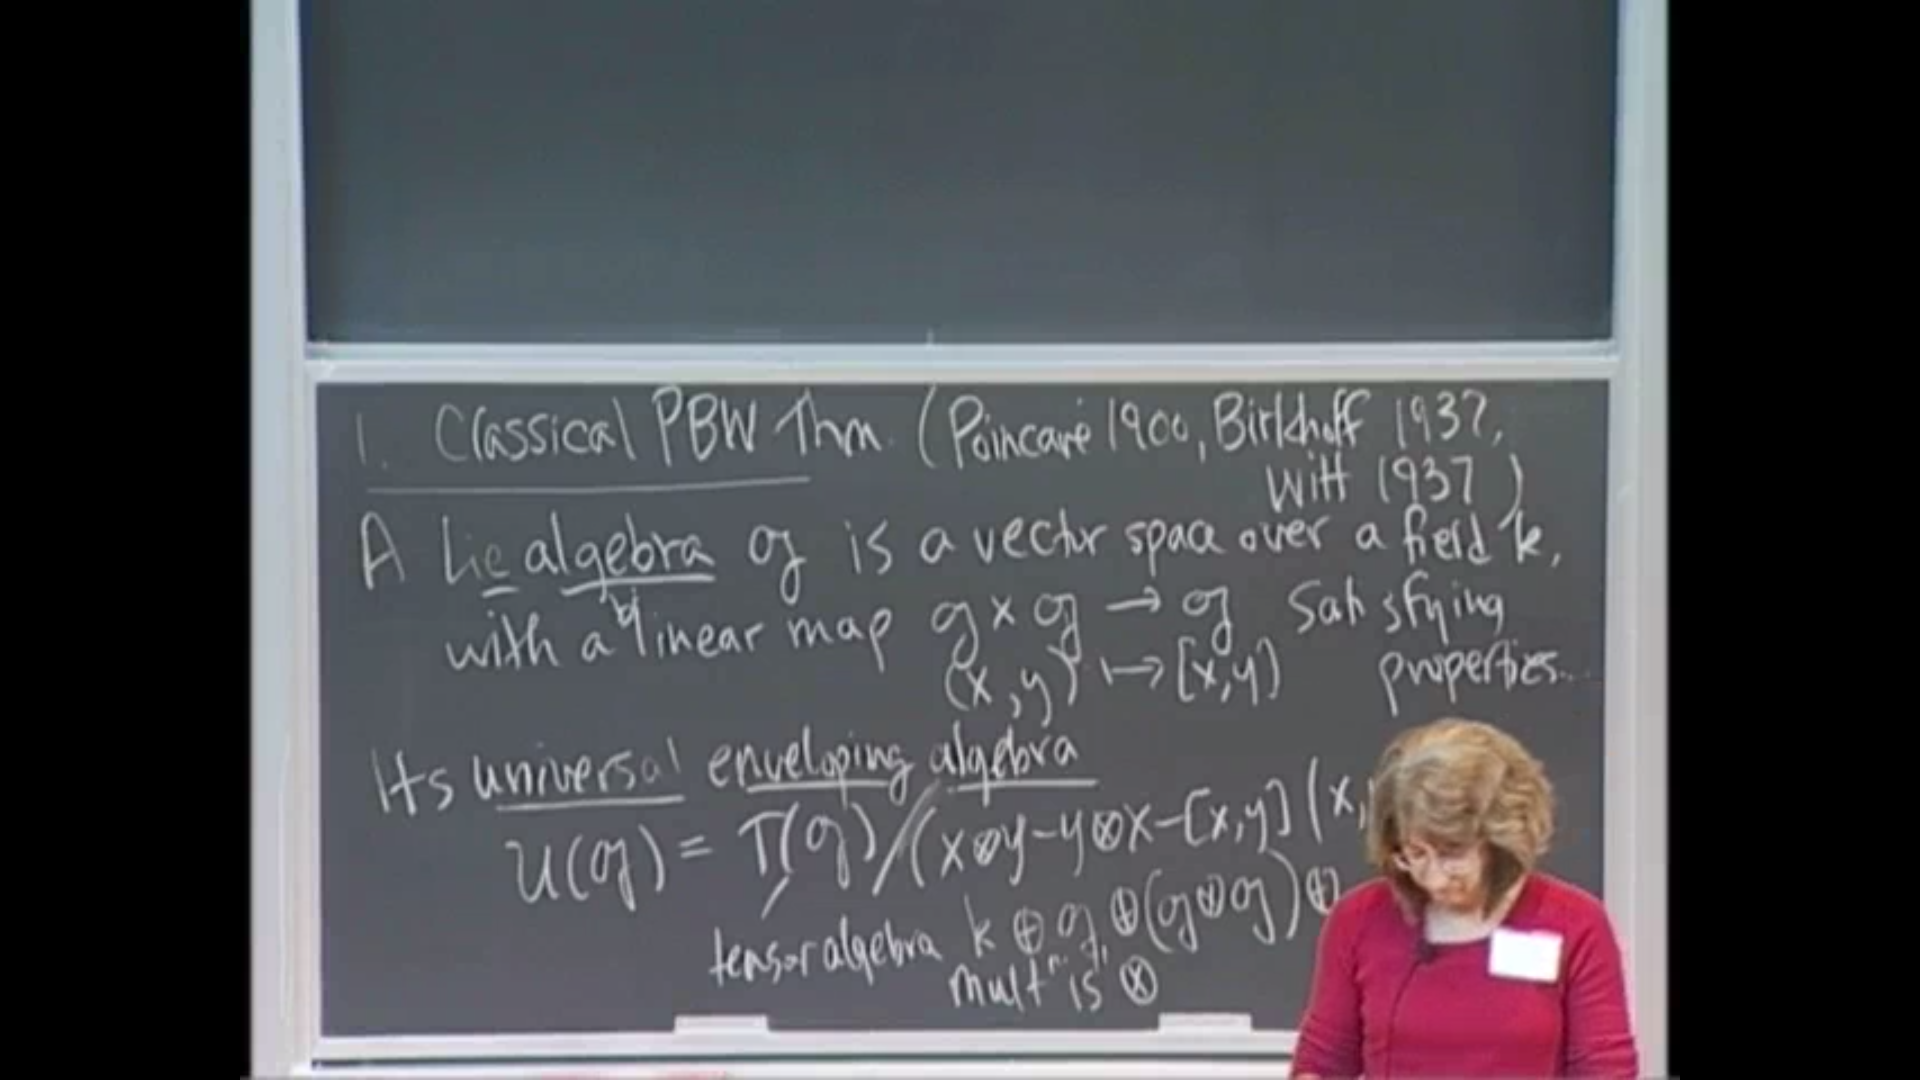 1. Classical PBW Thm. (Poincaré 1900, Birkhoff 1937,
Witt 1937)
A Lie algebra 𝔤 is a vector space over a field k,
with a bilinear map 𝔤 × 𝔤 → 𝔤 satisfying
(x,y) ↦ [x,y] properties...
Its universal enveloping algebra
U(𝔤) = T(𝔤)/(x⊗y-y⊗x-[x,y] (x,
tensor algebra k ⊕ 𝔤 ⊕(𝔤⊗𝔤)⊕
multⁿ. is ⊗